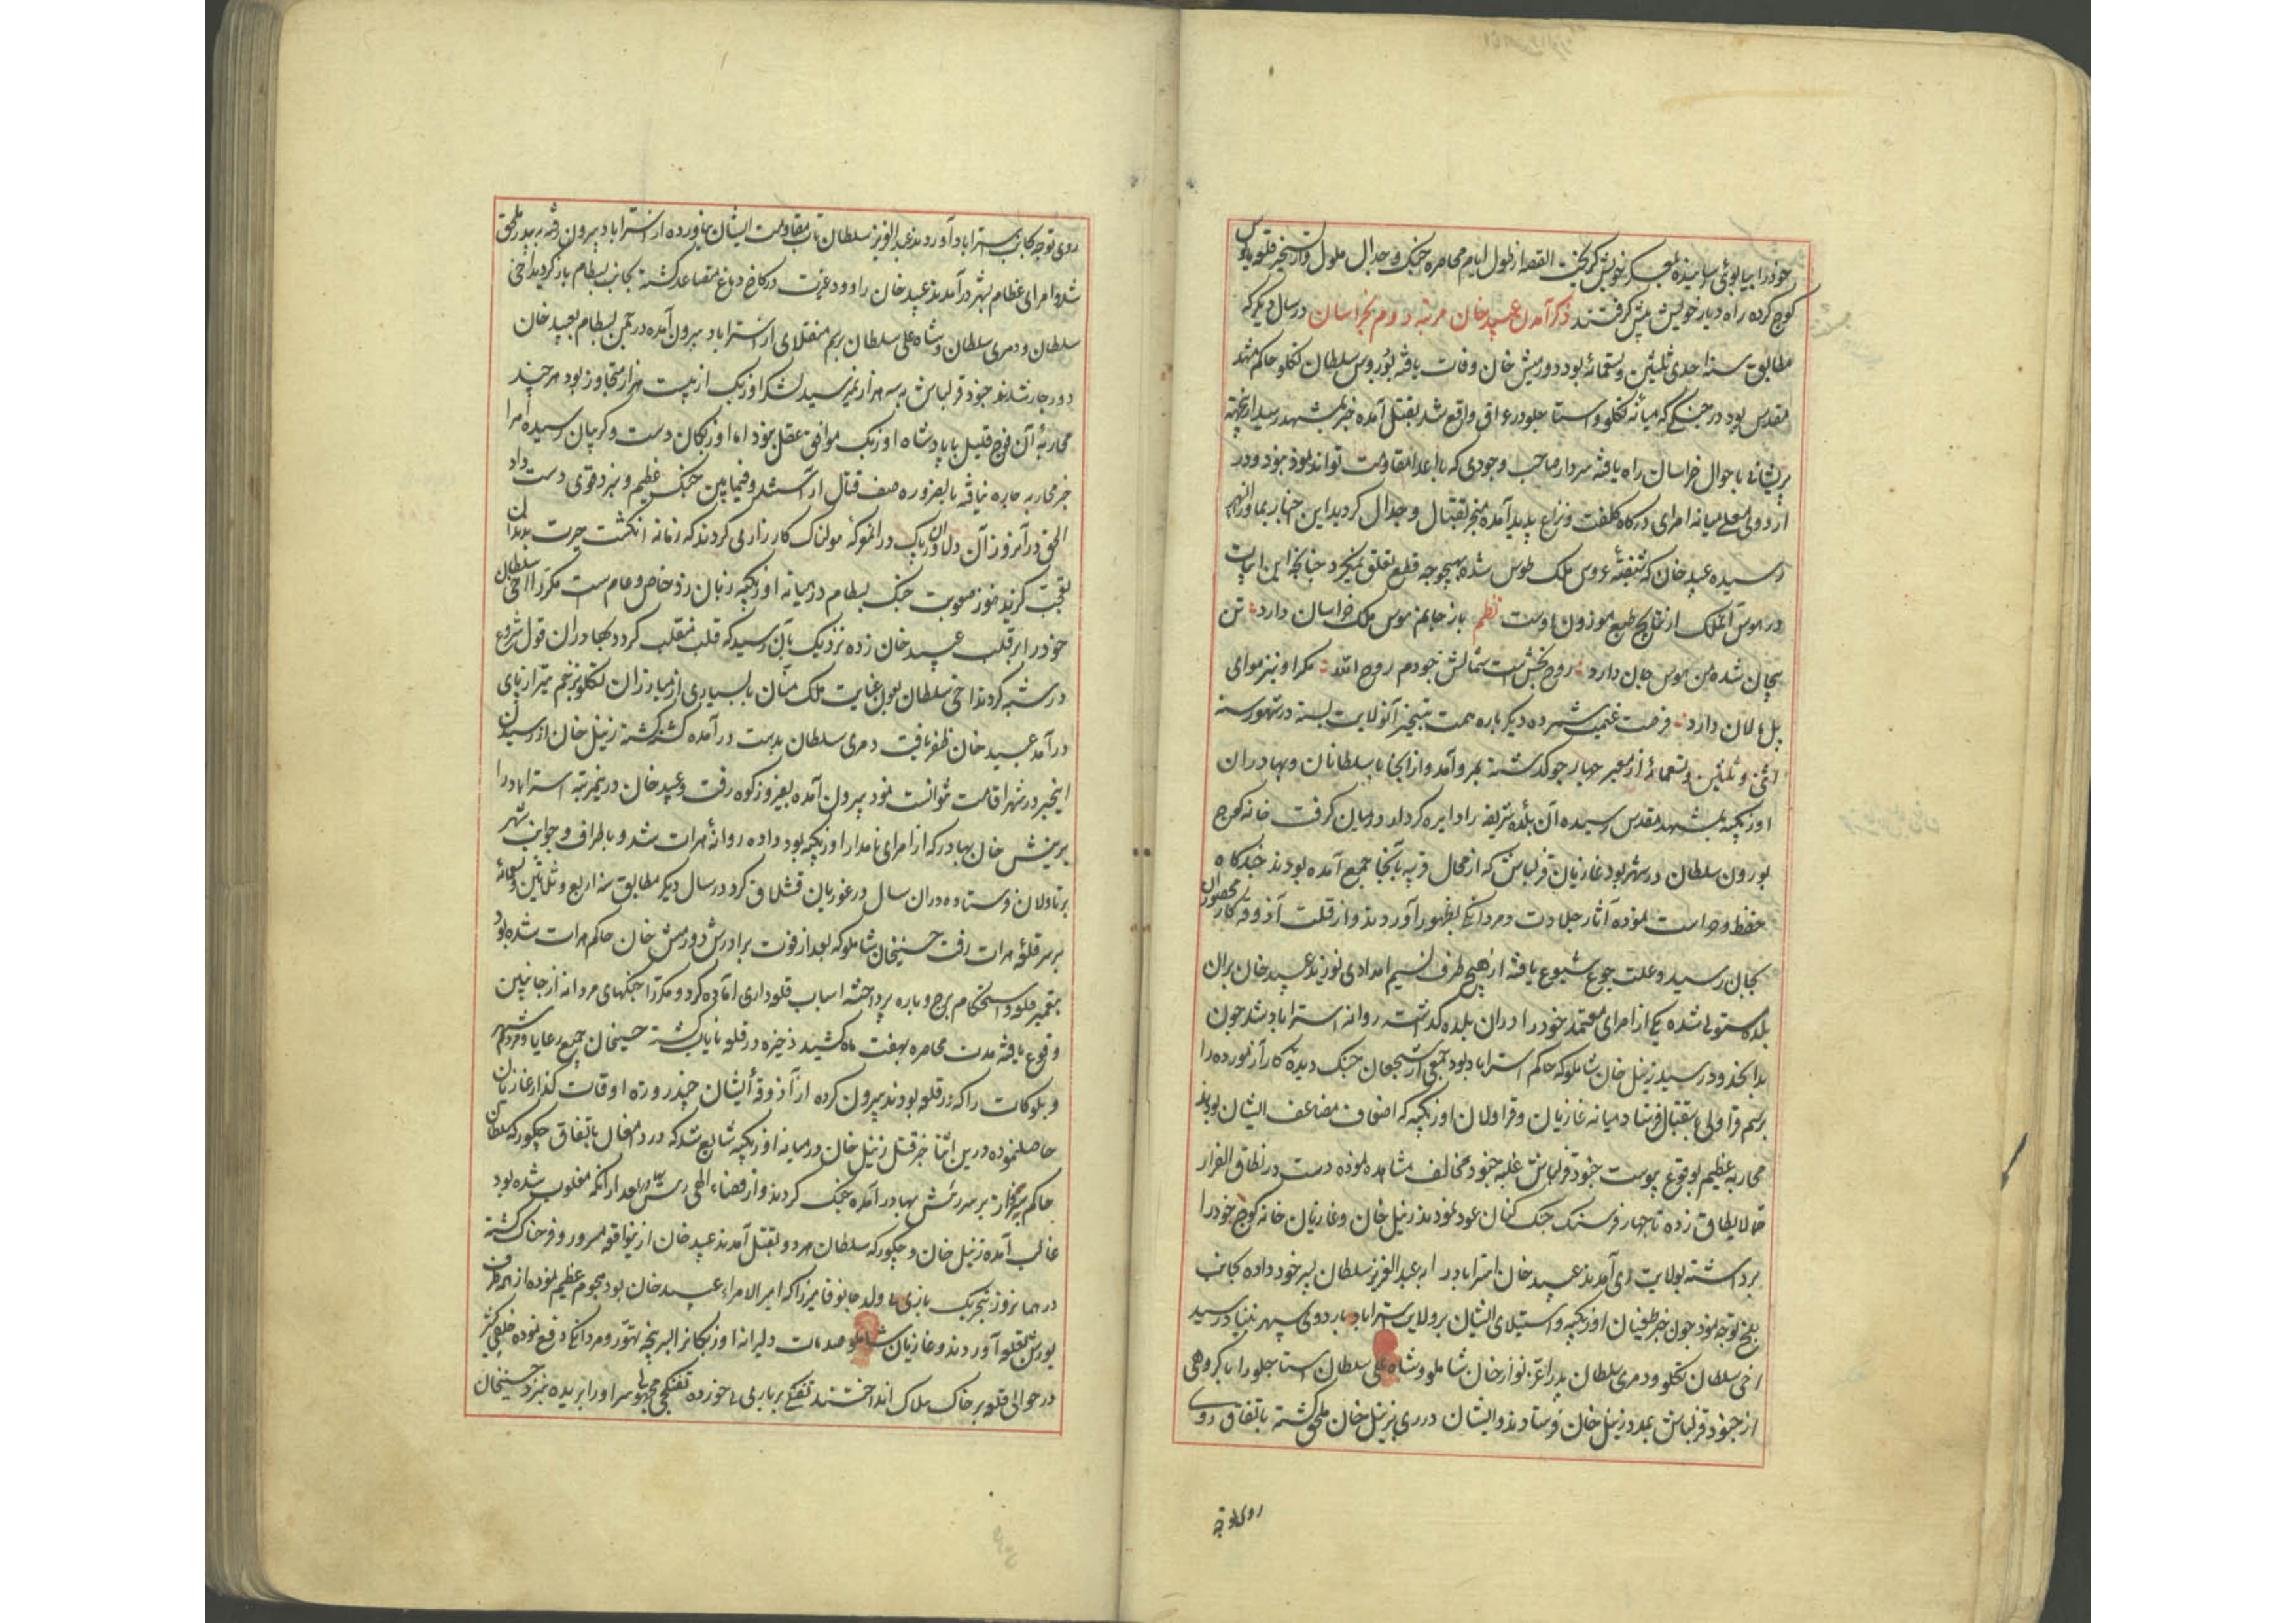 خود را بیابوئی رسانیده بمعسکر خویش گریخت القصه از طول ایام محاصره جنک و جدال ملول و از تسخیر قلعه مایوس
کوچ کرده راه دیار خویش پیش گرفتند ذکر آمدن عبید خان مرتبه دوم بخراسان در سال دیگر که
مطابق سنه احدی ثلثین و تسعمائه بود دورمیش خان وفات یافته بورون سلطان تکلو حاکم مشهد
مقدس بود در جنکی که میانه تکلو و استاجلو در عراق واقع شد بقتل آمده خبر بمشهد رسید ازینجهته
پریشانی باحوال خراسان راه یافته سردار صاحب وجودی که با اعدا مقاومت تواند نمود نبود و در
اردوی معلی میانه امرای درگاه کلفت و نزاع پدید آمده منجر بقتال و جدال گردید این اخبار بماوراالنهر
رسیده عبید خان که شیفتهٔ عروس ملک طوس شده بهیچوجه قطع تعلق نمیکرد چنانچه این ابیات
در هوس آنملک از نتایج طبع موزون اوست نظم باز جانم هوس ملک خراسان دارد تن
بیجان شده من هوس جان دارد روح بخش است شمالش خودم روح الله مکر او نیز هوای
پل مالان دارد فرصت غنیمت شمرده دیکر باره همت بتسخیر آنولایت بسته در شهور سنه
اثنی و ثلثین و تسعمائه از معبر چهارجو گذشته بمرو آمد و از آنجا با سلطانان و بهادران
اوزبکیه بمشهد مقدس رسیده آن بلده شریفه را دایره کردار درمیان کرفت خانه کوچ
بورون سلطان در شهر بود غازیان قزلباش که از محال قریبه بآنجا جمع آمده بودند خندکاه
حفظ و حراست نموده آثار جلادت و مردانکی بظهور آوردند و از قلت آذوقه کار محصوران
بجان رسید و علت جوع شیوع یافته از هیچ طرف نسیم امدادی نوزید عبید خان بران
بلده مستولی شده یکی از امرای معتمد خود را دران بلده گذاشته روانه استراباد شد چون
بدانحدود رسید زینل خان شاملو که حاکم استراباد بود جمعی از شجعان جنک دیده کار آزموده را
برسم قراولی باستقبال فرستاد میانه غازیان و قراولان اوزبکیه که اضعاف مضاعف ایشان بودند
محاربه عظیم بوقوع پیوست جنود قزلباش غلبه جنود مخالف مشاهده نموده دست در نطاق الفرار
مما لایطاق زده تا چهار فرسنک جنک کنان عود نمودند زینل خان و غازیان خانه کوچ خود را
برداشته بولایت ری آمدند عبید خان استراباد را به عبدالعزیز سلطان پسر خود داده بجانب
بلخ توجه نمود چون خبر طغیان اوزبکیه و استیلای ایشان بر ولایت استراباد باردوی سپهر بنیاد رسید
اخی سلطان تکلو و دمری سلطان برادر نواز خان شاملو و شاه علی سلطان استاجلو را با کروهی
از جنود قزلباش بمدد زینل خان فرستادند و ایشان در ری بزینل خان ملحق کشته باتفاق روی
روی توجه
روی توجه بجانب استراباد آوردند عبدالعزیز سلطان تاب مقاومت ایشان نیاورده از استراباد بیرون رفته به پدر ملحق
شد و امرای عظام بشهر درآمدند عبید خان را دود غیرت در کاخ دماغ متصاعد کشته بجانب بسطام باز گردید اخی
سلطان و دمری سلطان و شاه علی سلطان برسم منقلای از استراباد بیرون آمده در چمن بسطام بعبید خان
دورچار شدند جنود قزلباش به سه هزار نمیرسید لشکر اوزبک از بیست هزار متجاوز بود هر چند
محاربهٔ آن فوج قلیل با پادشاه اوزبک موافق عقل نبود اما اوزبکان دست و کریبان رسیده امرا
جز محاربه چاره نیافته بالضروره صف قتال آراستند و فیمابین جنک عظیم و نبرد قوی دست داد
الحق در آنروز آن دلاوران بی باک در آنمعرکهٔ هولناک کارزاری کردند که زمانه انکشت حیرت بدندان
تعجب کزید هنوز صعوبت جنک بسطام در میانه اوزبکیه زبان زد خاص و عام است مکررا اخی سلطان
خود را بر قلب عبید خان زده نزدیک بآن رسید که قلب منقلب کردد بهادران قول شروع
در شیبه کردند اخی سلطان بعون عنایت ملک منان با بسیاری از مبارزان تکلو بزخم تیر از پای
درآمد عبید خان ظفر یافت دمری سلطان بدست درآمده کشته کشت زینل خان از رسیدن
اینخبر در شهر اقامت نتوانست نمود بیرون آمده بفیروزکوه رفت و عبید خان درینمرتبه استراباد را
برینش خان بهادر که از امرای نامدار اوزبکیه بود داده روانهٔ هرات شد و باطراف و جوانب شهر
برتاولان فرستاده دران سال در غوریان قشلاق کرد در سال دیکر مطابق سنه اربع و ثلاثین و تسعمائه
بر سر قلعهٔ هرات رفت حسینخان شاملو که بعد از فوت برادرش دورمیش خان حاکم هرات شده بود
بتعمیر قلعه و استحکام برج و باره پرداخته اسباب قلعه داری آماده کرد و مکررا جنکهای مردانه از جانبین
وقوع یافته مدت محاصره بهفت ماه کشید ذخیره در قلعه نایاب کشته حسینخان جمیع رعایا و مردم شهر
و بلوکات را که در قلعه بودند بیرون کرده از آذوقهٔ ایشان چند روزه اوقات گذار غازیان
حاصل نموده درین اثنا خبر قتل زینل خان در میانه اوزبکیه شایع شد که در دامغان باتفاق چکورکه سلطان
حاکم سبزوار بر سر رینش بهادر آمده جنک کردند و از قضاء الهی رینش بهادر بعد ازانکه مغلوب شده بود
غالب آمده زینل خان و چکورکه سلطان هر دو بقتل آمدند عبید خان از ینواقعه مسرور و فرحناک کشته
در همانروز بتحریک یاری بی ولد جانوفا میرزا که امیر الامراء عبید خان بود هجوم عظیم نموده از هر طرف
یورش بقلعه آوردند و غازیان شاملو صدمات دلیرانه اوزبکانرا بسرپنجه تهور و مردانکی دفع نموده خلقی کثیر
در حوالی قلعه بر خاک هلاک انداختند تفنکی بر یاری بی خورده تفنکچی مجهولی سر او را بریده بنزد حسینخان